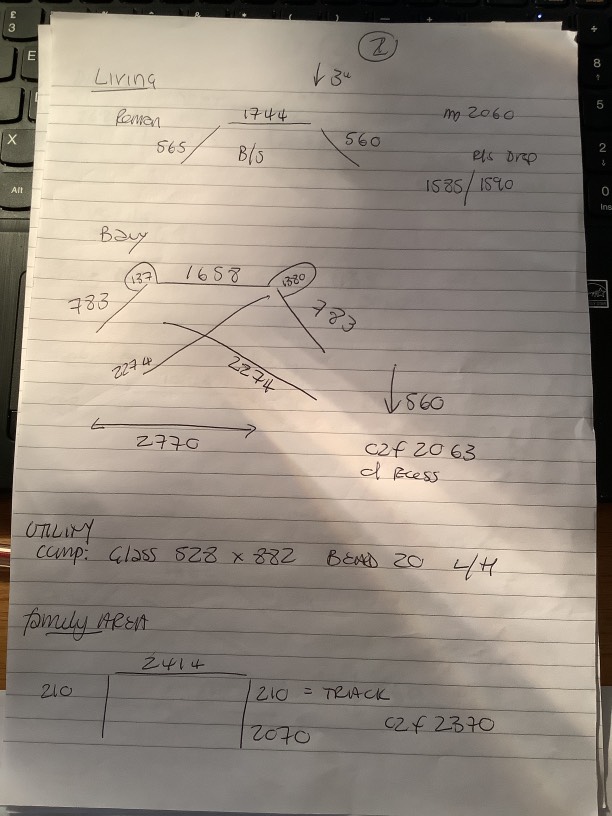 2
Living
↓ 3"
Roman 1744 m 2060
565 B/s 560
R/s Drop
1585/1590
Bay
137 1658 1380
783 783
2274 2274
↓ 560
2770
c2f 2063
d Recess
UTILITY
Camp: Glass 528 x 882 BEAD 20 L/H
family AREA
2414
210 210 = TRACK
2070 c2f 2370